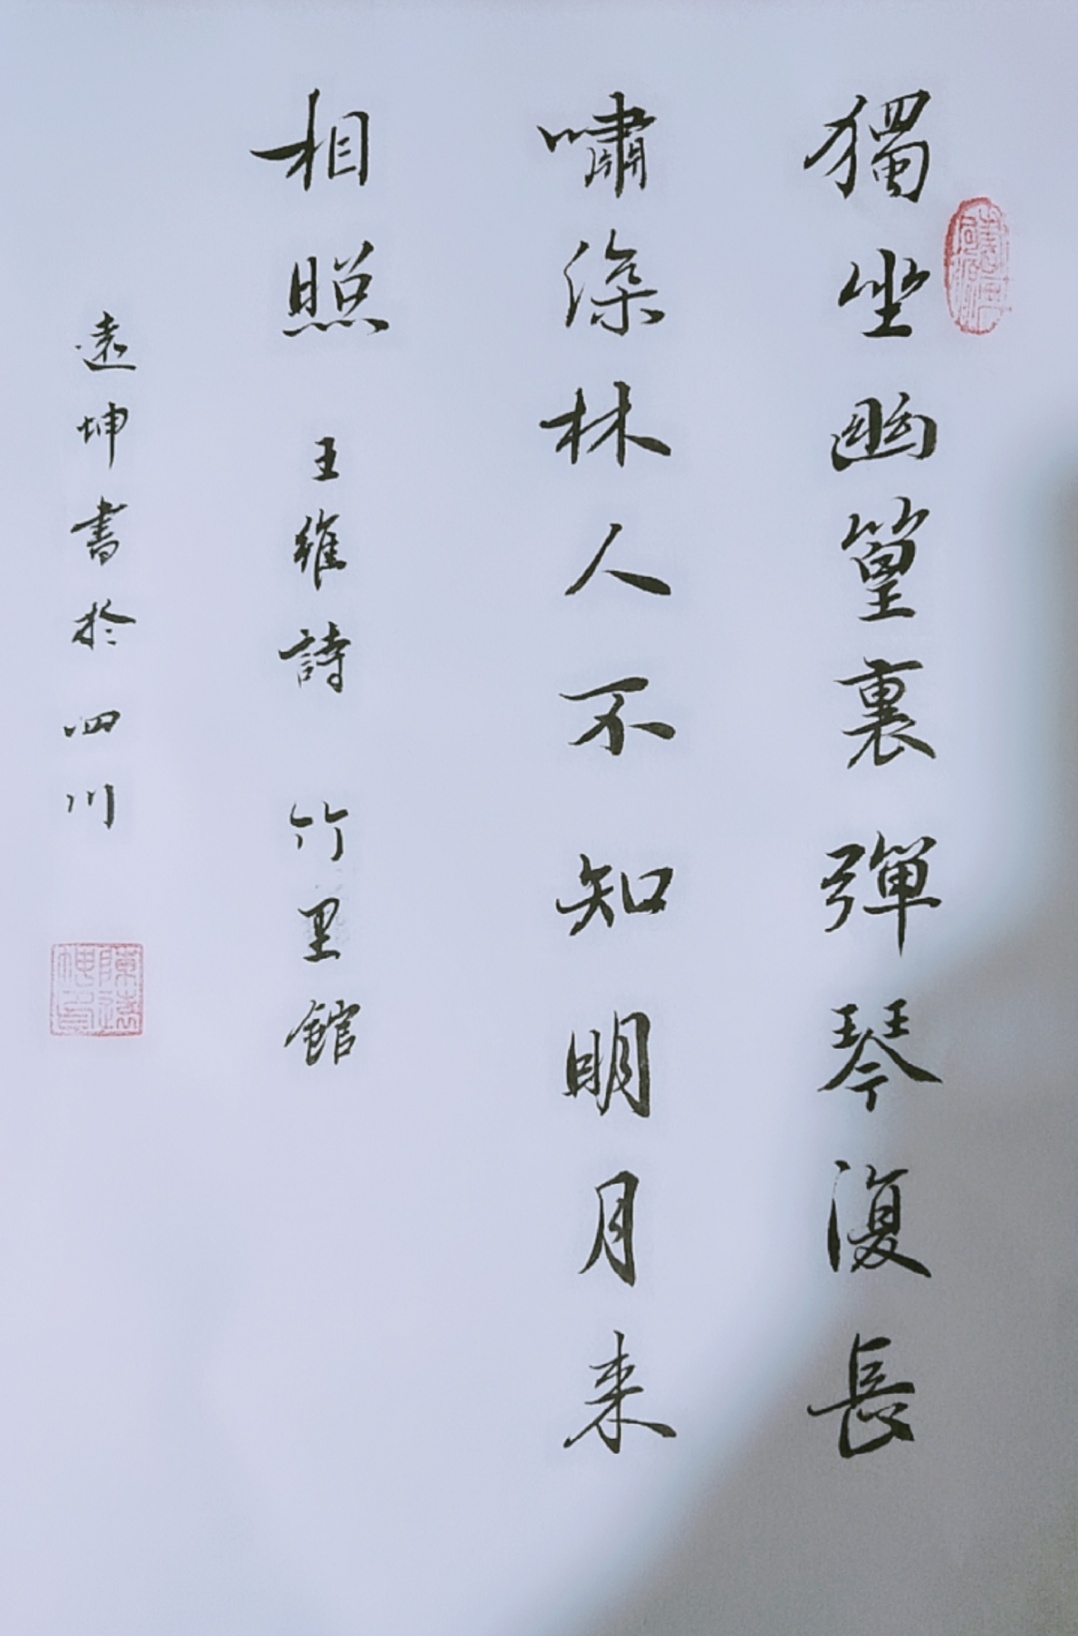 獨坐幽篁裏彈琴復長
嘯深林人不知明月来
相照 王維詩 竹里館
遠坤書於四川